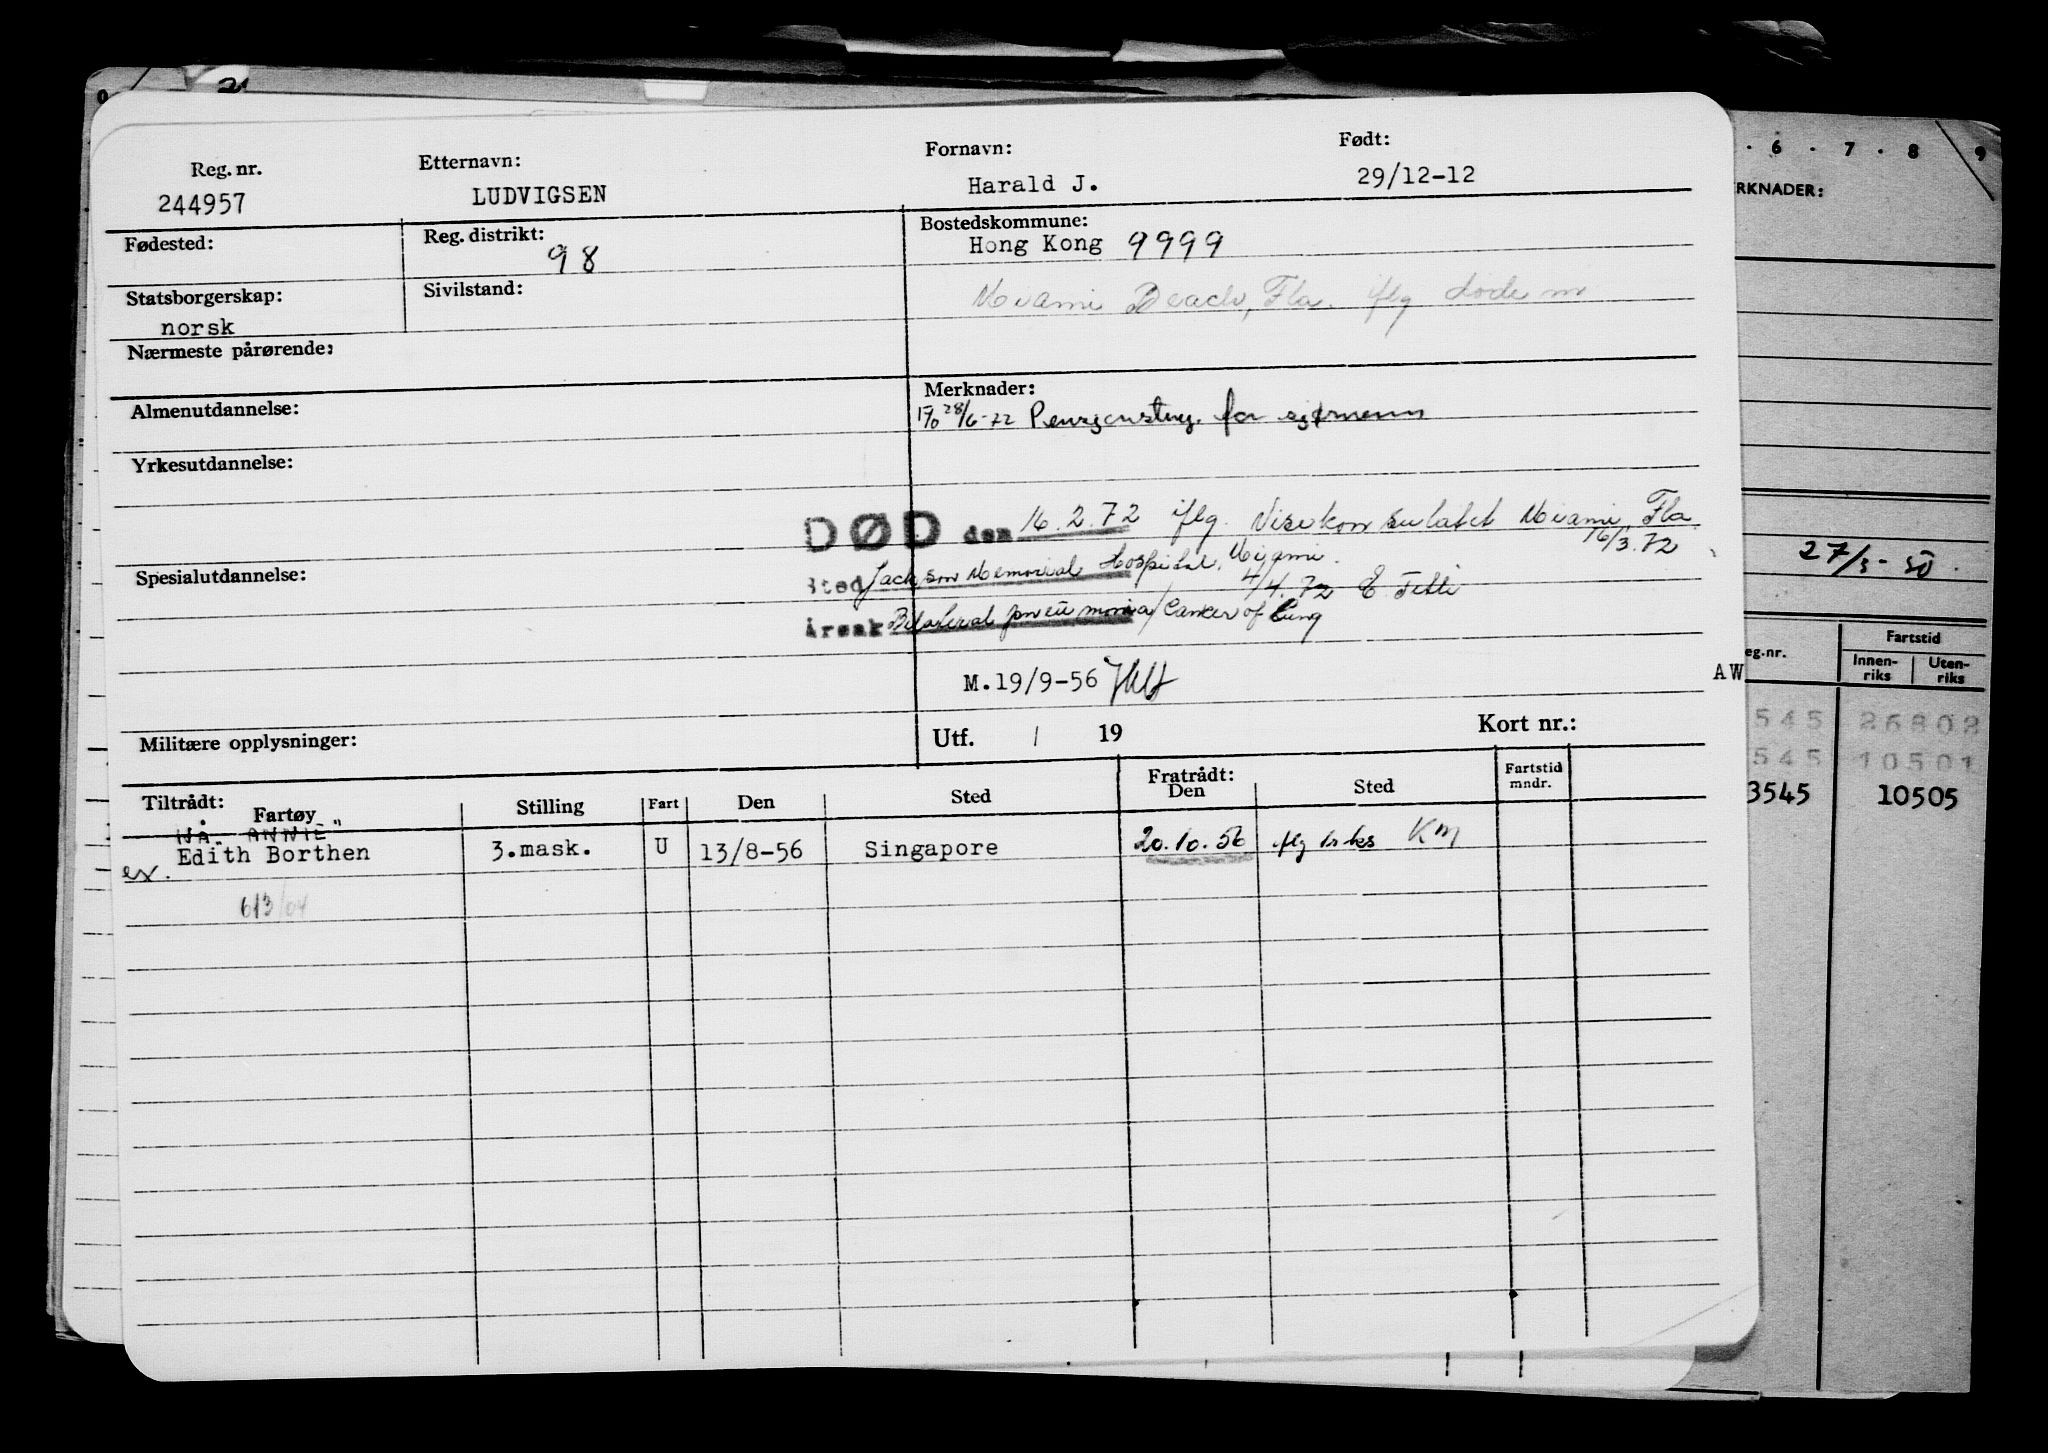 Reg. nr. Etternavn: Fornavn: Født:
244957 LUDVIGSEN Harald J. 29/12-12
Fødested: Reg. distrikt: 98 Bostedskommune:
Hong Kong 9999
Statsborgerskap: Sivilstand: Miami Beach, Fla. iflg døde m
norsk
Nærmeste pårørende:
Almenutdannelse: Merknader:
28/6-72 Pensjonstryg. for sjømenn
Yrkesutdannelse:
DØD den 16.2.72 iflg. Visekonsulatet Miami, Fla
16/3.72
Spesialutdannelse: Sted Jackson Memorial Hospital, Miami.
4/4.72
Årsak Bilateral pneumonia/Cancer of Lung
M.19/9-56
Militære opplysninger: Utf. / 19 Kort nr.:
Tiltrådt: Fartøy Stilling Fart Den Sted Fratrådt: Den Sted Fartstid mndr.
"ANNIE"
ex. Edith Borthen 3.mask. U 13/8-56 Singapore 20.10.56 KM
613/04
0
. 6 . 7 . 8 9
RKNADER:
27/3-50
eg.nr. Fartstid
Innen-riks Uten-riks
AW
545 26802
545 10501
3545 10505